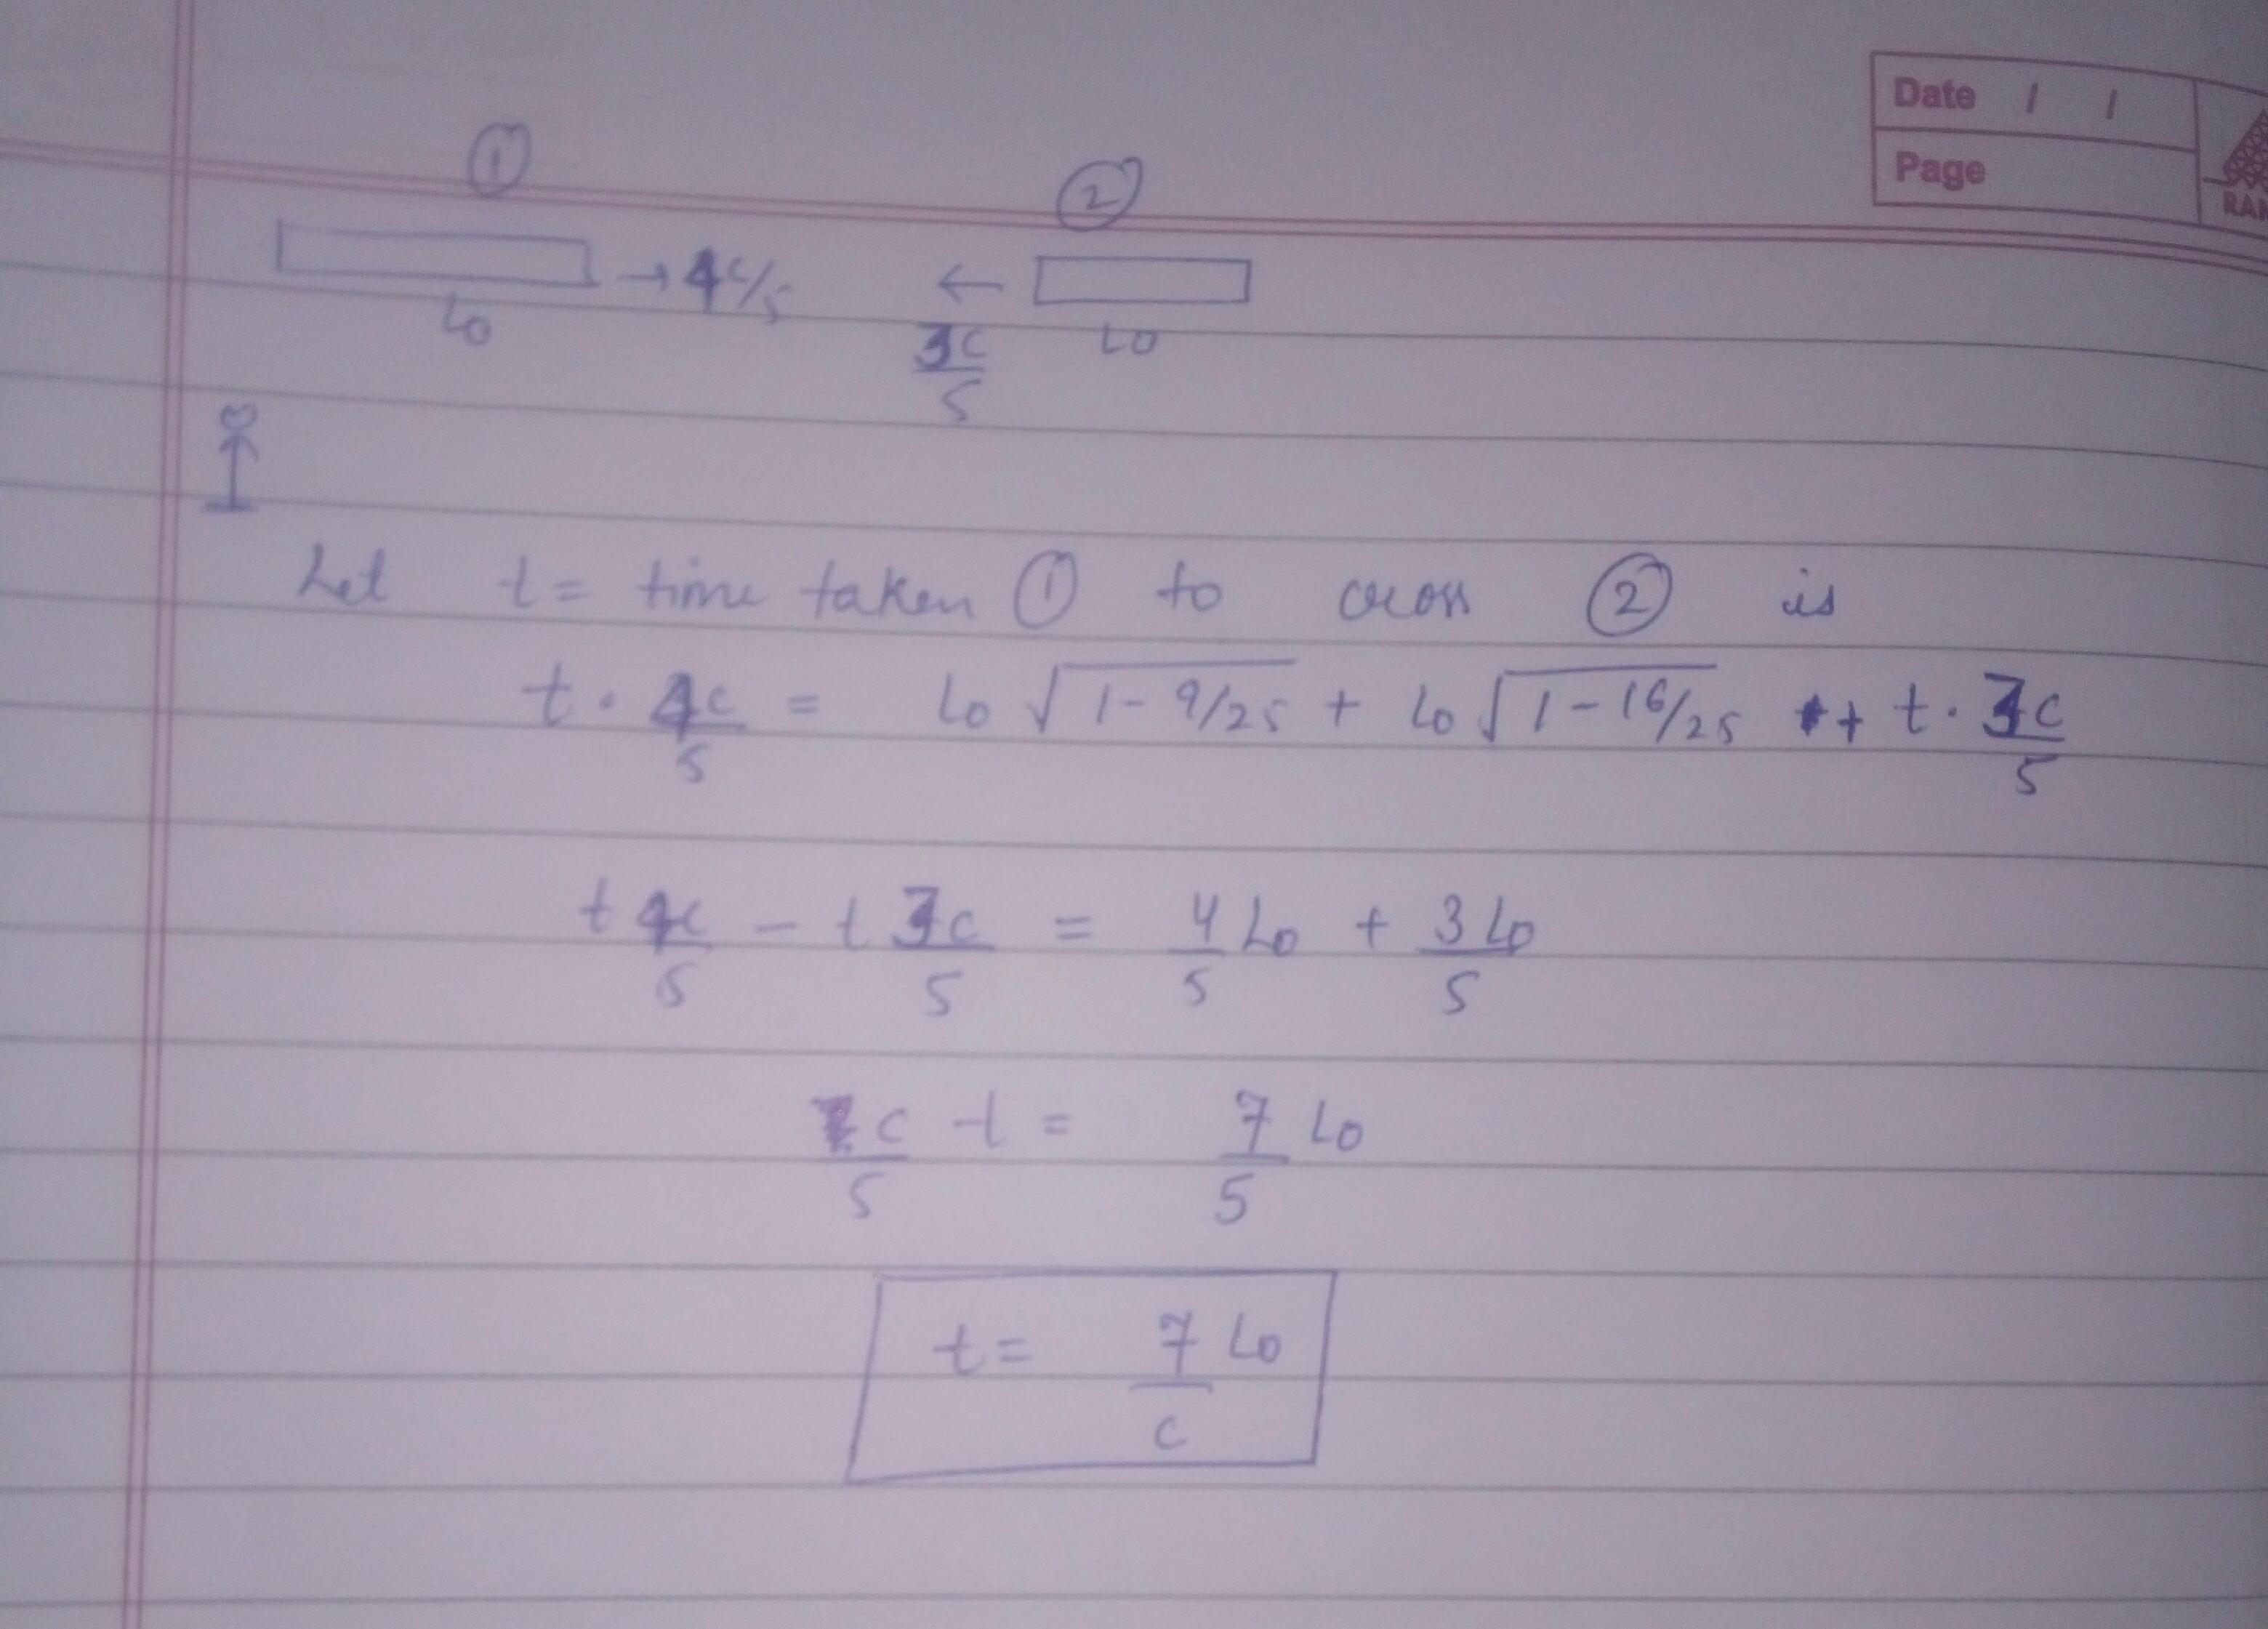 Date / /
Page
RAN
①
②
→ 4c/5
←
3c/5
L0
L0
Let t = time taken ① to cross ② is
t · 4c/5 = L0 √(1 - 9/25) + L0 √(1 - 16/25) + t · 3c/5
t 4c/5 - t 3c/5 = 4/5 L0 + 3L0/5
c/5 t = 7/5 L0
t = 7 L0/c